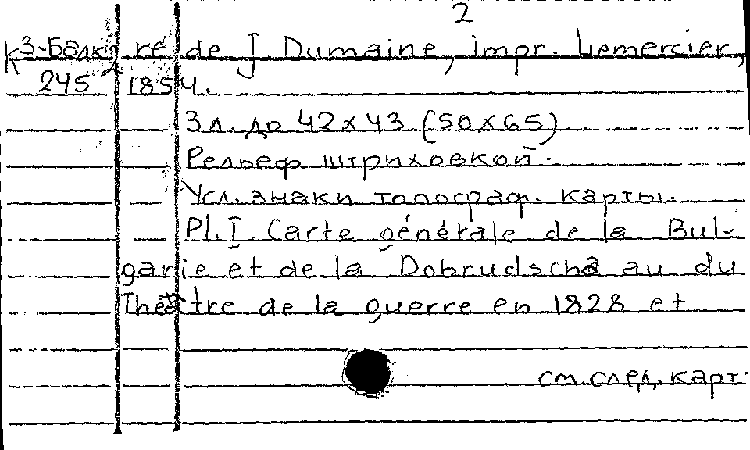 2
К 3-Балк re de J Dumaine, impr. Lemercier,
245 1854.
3 л. до 42x43 (50x65)
Рельеф штриховкой.
Усл. знаки топограф. карты.
Pl. I. Carte générale de la Bul-
garie et de la Dobrudscha au du
Théâtre de la guerre en 1828 et
см. след. карт.